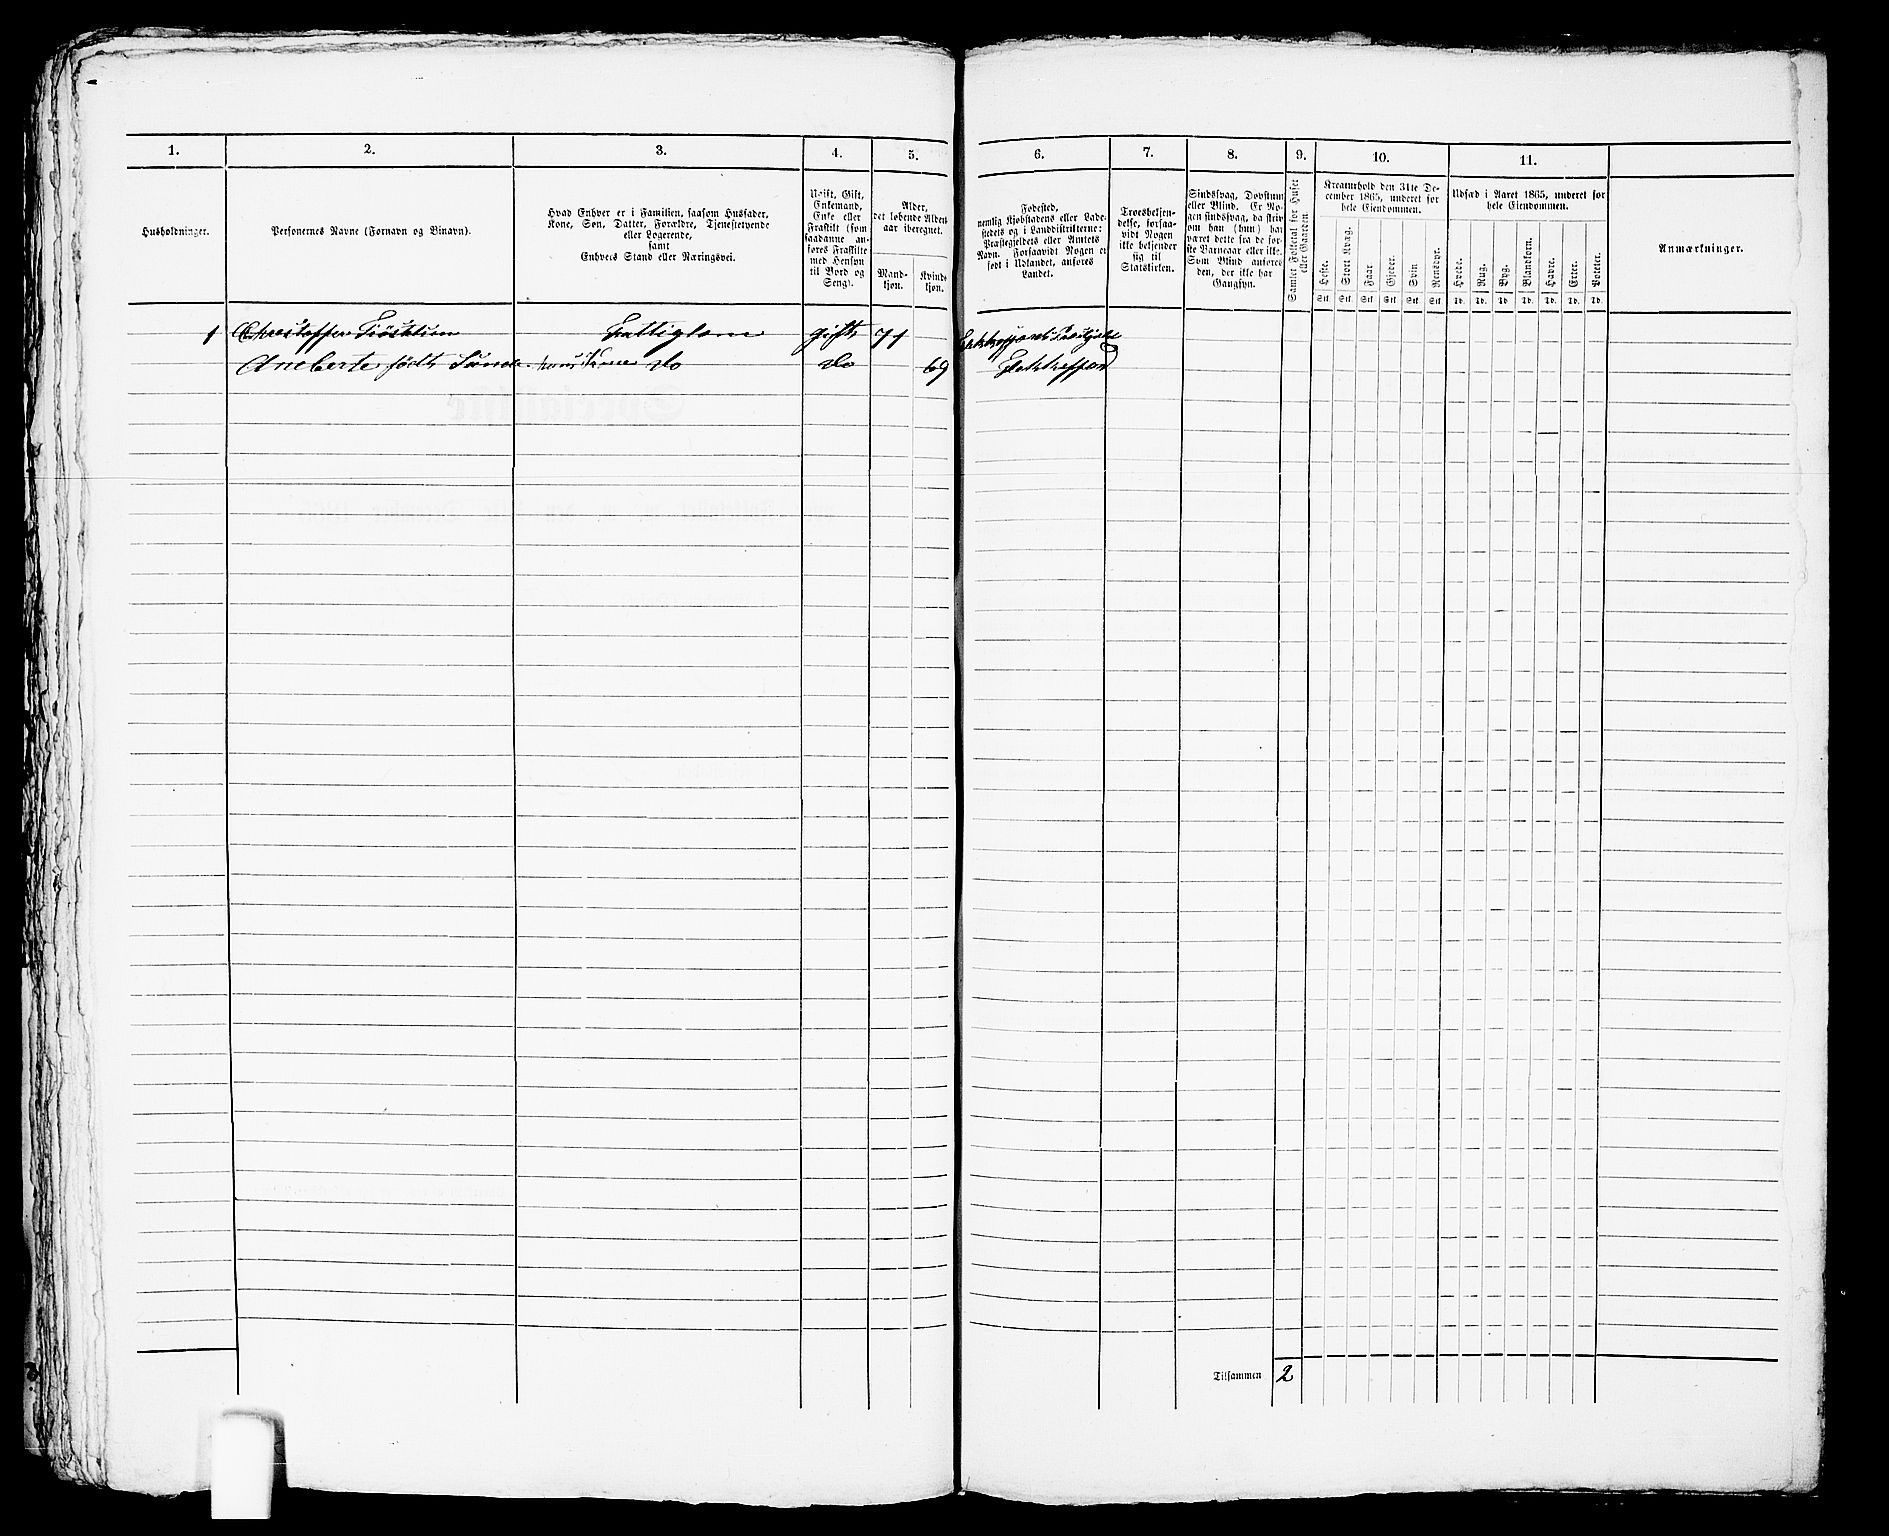 1. 2. 3. 4. 5. 6. 7. 8. 9. 10. 11.
Husholdninger.
Personernes Navne (Fornavn og Binavn).
Hvad Enhver er i Familien, saasom Husfader,
Kone, Søn, Datter, Forældre, Tjenestetyende
eller Logerende,
samt
Enhvers Stand eller Næringsvei.
Ugift, Gift,
Enkemand,
Enke eller
Fraskilt (som
saadanne an-
føres Fraskilte
med Hensyn
til Bord og
Seng).
Alder,
det løbende Alders-
aar iberegnet.
Mand-
kjøn.
Kvind-
kjøn.
Fødested,
nemlig Kjøbstadens eller Lade-
stedets og i Landdistrikterne:
Præstegjeldets eller Amtets
Navn. Forsaavidt Nogen er
født i Udlandet, anføres
Landet.
Troesbekjen-
delse, forsaa-
vidt Nogen
ikke bekjender
sig til
Statskirken.
Sindssvag, Døvstum
eller Blind. Er No-
gen sindssvag, da skriv
om han (hun) har
været dette fra de før-
ste Barneaar eller ikke.
Som Blind anføres
den, der ikke har
Gangsyn.
Samlet Folketal for Huset
eller Gaarden.
Kreaturhold den 31te De-
cember 1865, underet for
hele Eiendommen.
Heste. Stort Kvæg. Faar Gjeder. Svin Rensdyr.
Stk. Stk. Stk. Stk. Stk. Stk.
Udsæd i Aaret 1865, underet for
hele Eiendommen.
Hvede. Rug. Byg. Blandkorn. Havre. Erter. Poteter.
Td. Td. Td. Td. Td. Td. Td.
Anmærkninger.
1 Christoffer Fattiglem gift 71
Aneberte født Sunde hans Kone do do 69 Flekkefjord
Tilsammen 2